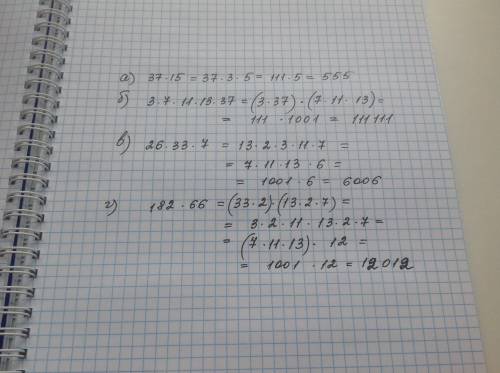 а) 37·15 = 37·3·5 = 111·5 = 555
б) 3·7·11·13·37 = (3·37)·(7·11·13) =
= 111·1001 = 111111
в) 26·33·7 = 13·2·3·11·7 =
= 7·11·13·6 =
= 1001·6 = 6006
г) 182·66 = (33·2)·(13·2·7) =
= 3·2·11·13·2·7 =
= (7·11·13)·12 =
= 1001·12 = 12012